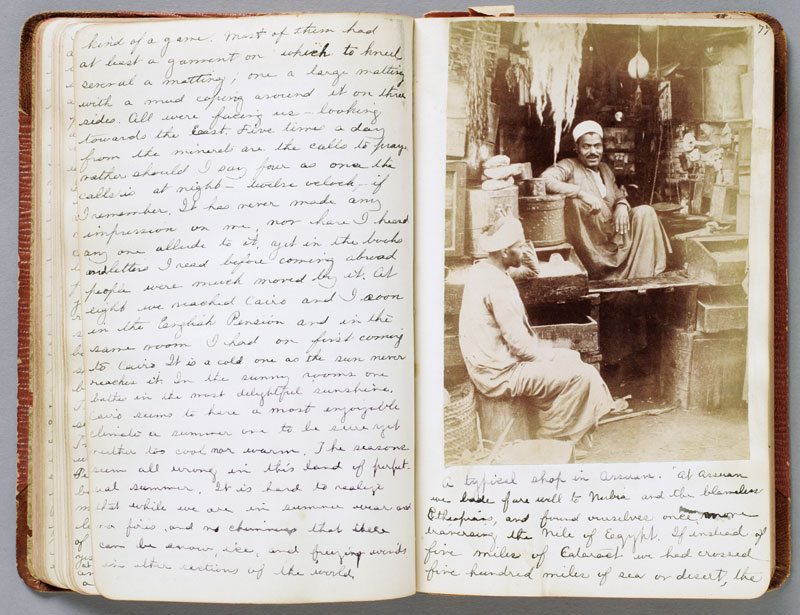 kind of a game. Most of them had
at least a garment on which to kneel
several a matting; one a large matting
with a mud coping around it on three
sides. All were facing us – looking
towards the East. Five times a day
from the minerets are the calls to prayer
rather should I say four as one the
calls is at night – twelve oclock – if
I remember. It has never made any
impression on me, nor have I heard
any one allude to it, yet in the books
and letters I read before coming abroad
people were much moved by it. At
eight we reached Cairo and I soon
in the English Pension and in the
same room I had on first coming
to Cairo. It is a cold one as the sun never
reaches it. In the sunny rooms one
baths in the most delightful sunshine.
Cairo seems to have a most enjoyable
climate a summer one to be sure yet
neither too cool nor warm. The seasons
seem all wrong in this land of perpet-
ual summer. It is hard to realize
that while we are in summer wear and
no fires, and no chimneys that there
can be snow, ice, and freezing winds
in other sections of the world
77
A typical shop in Assuan. "At Assuan
we bade farewell to Nubia and the blameless
Ethiopians, and found ourselves once more
traversing the Nile of Egypt. If instead of
five miles of Cataract we had crossed
five hundred miles of sea or desert, the